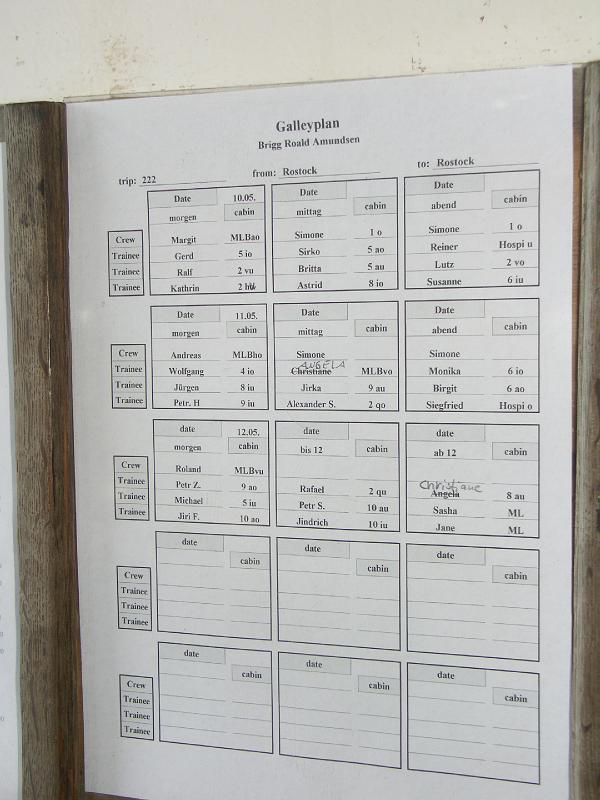 Galleyplan
Brigg Roald Amundsen
trip: 222 from: Rostock to: Rostock
Date 10.05. Date Date
morgen cabin mittag cabin abend cabin
Crew Margit MLBao Simone 1 o Simone 1 o
Trainee Gerd 5 io Sirko 5 ao Reiner Hospi u
Trainee Ralf 2 vu Britta 5 au Lutz 2 vo
Trainee Kathrin 2 Astrid 8 io Susanne 6 iu
Date 11.05. Date Date
morgen cabin mittag cabin abend cabin
Crew Andreas MLBho Simone Simone
ANGELA
Trainee Wolfgang 4 io Christiane MLBvo Monika 6 io
Trainee Jürgen 8 iu Jirka 9 au Birgit 6 ao
Trainee Petr. H 9 iu Alexander S. 2 qo Siegfried Hospi o
date 12.05. date date
morgen cabin bis 12 cabin ab 12 cabin
Crew Roland MLBvu
Christiane
Trainee Petr Z. 9 ao Rafael 2 qu Angela 8 au
Trainee Michael 5 iu Petr S. 10 au Sasha ML
Trainee Jiri F. 10 ao Jindrich 10 iu Jane ML
date date date
cabin cabin cabin
Crew
Trainee
Trainee
Trainee
date date date
cabin cabin cabin
Crew
Trainee
Trainee
Trainee